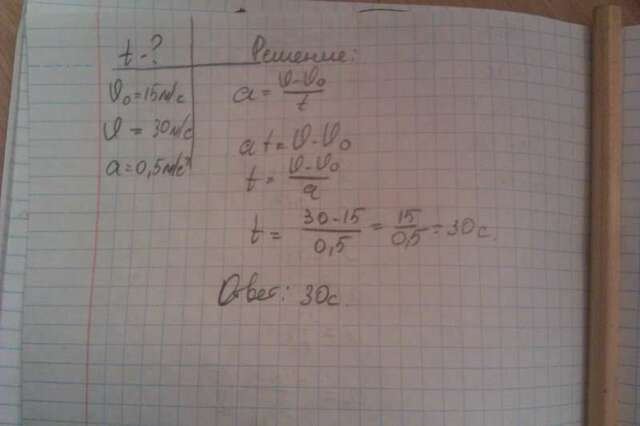 t - ?
υ₀ = 15 м/с
υ = 30 м/с
a = 0,5 м/с²
Решение:
a = (υ - υ₀)/t
a t = υ - υ₀
t = (υ - υ₀)/a
t = (30 - 15)/0,5 = 15/0,5 = 30 с.
Ответ: 30 с.